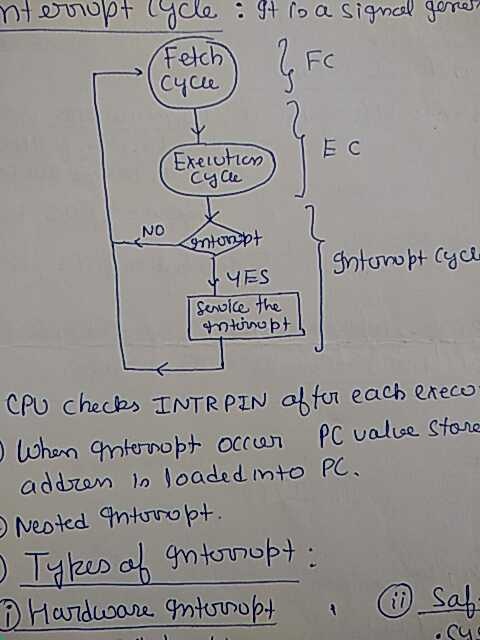 Interrupt Cycle : It is a signal gener
Fetch
Cycle
FC
Execution
Cycle
EC
NO
Interrupt
YES
Interrupt Cycle
Service the
Interrupt
CPU checks INTR PIN after each execu
When Interrupt occur PC value store
address is loaded into PC.
Nested Interrupt.
Types of Interrupt :
(i) Hardware Interrupt
(ii) Sof